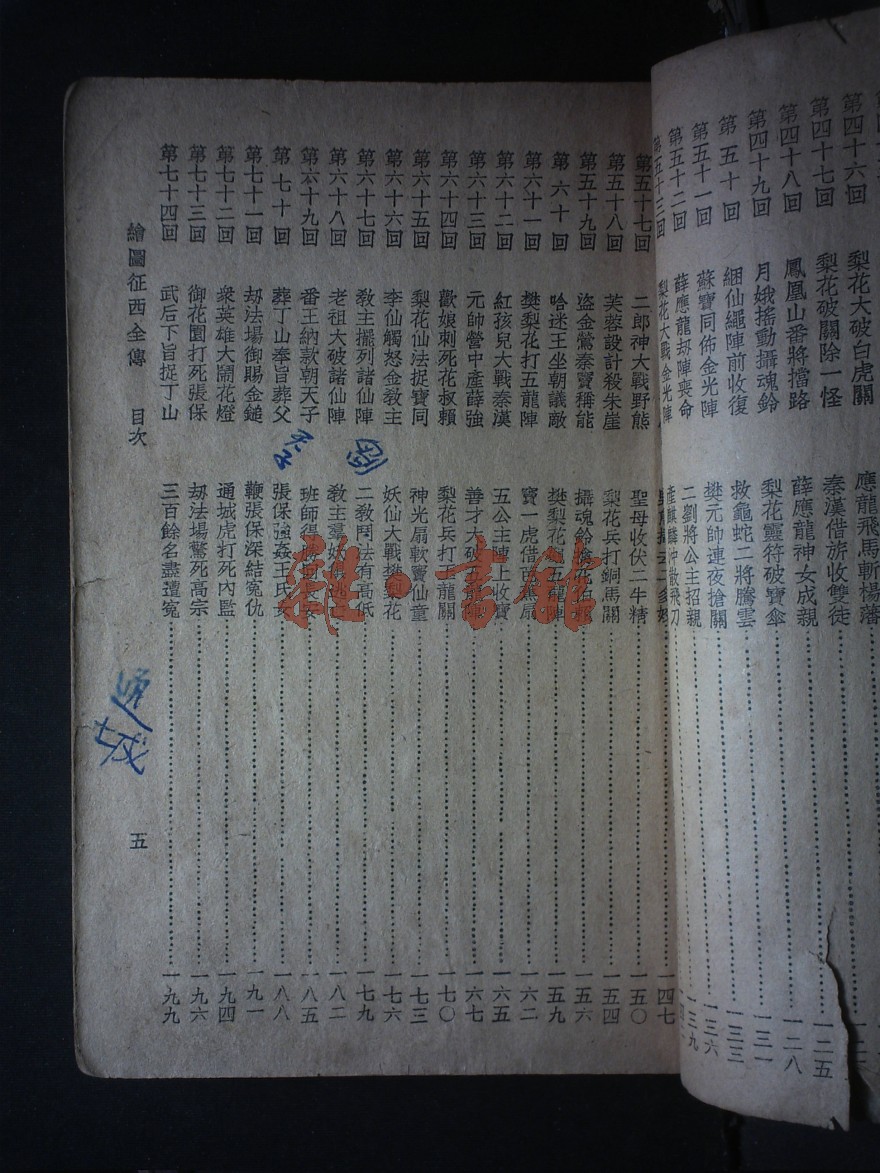 第四十六回 梨花大破白虎關 應龍飛馬斬楊藩
第四十七回 梨花破關除一怪 秦漢借旂收雙徒 一二五
第四十八回 鳳凰山番將擋路 薛應龍神女成親 一二八
第四十九回 月娥搖動攝魂鈴 梨花靈符破寶傘 一三一
第五十回 綑仙繩陣前收復 救龜蛇二將騰雲 一三三
第五十一回 蘇寶同佈金光陣 樊元帥連夜搶關 一三六
第五十二回 薛應龍刼陣喪命 二劉將公主招親 一三九
第五十三回 梨花大戰金光陣 產麒麟沖散飛刀
一四七
第五十七回 二郎神大戰野熊 聖母收伏二牛精 一五〇
第五十八回 芙蓉設計殺朱崖 梨花兵打銅馬關 一五四
第五十九回 盜金鶯泰寶稱能 攝魂鈴擒花伯賴 一五六
第六十回 哈迷王坐朝議敵 樊梨花打五龍陣 一五九
第六十一回 樊梨花打五龍陣 竇一虎借芭蕉扇 一六二
第六十二回 紅孩兒大戰秦漢 五公主陣上收寶 一六五
第六十三回 元帥營中產薛強 善才大破五龍陣 一六七
第六十四回 歡娘刺死花叔賴 梨花兵打玉龍關 一七〇
第六十五回 梨花仙法捉寶同 神光扇軟竇仙童 一七三
第六十六回 李仙觸怒金教主 妖仙大戰樊梨花 一七六
第六十七回 教主擺列諸仙陣 二教鬥法有高低 一七九
第六十八回 老祖大破諸仙陣 教主羣妖俱逃亡 一八二
第六十九回 番王納款朝天子 班師得勝回長安 一八五
第七十回 葬丁山奉旨葬父 張保強姦王氏女 一八八
第七十一回 刼法場御賜金鎚 鞭張保深結冤仇 一九一
第七十二回 衆英雄大鬧花燈 通城虎打死內監 一九四
第七十三回 御花園打死張保 刼法場驚死高宗 一九六
第七十四回 武后下旨捉丁山 三百餘名盡遭冤 一九九
繪圖征西全傳 目次 五
雜·書館